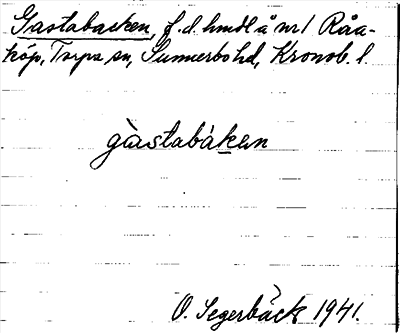 Gastabacken, f. d. hmdl å nr 1 Råa-
köp, Torpa sn, Sunnerbo hd, Kronob. l.
gàstabáken
O. Segerbäck 1941.